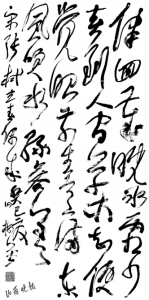 律回岁晚冰霜少
春到人间草木知便
觉眼前生意满东
风吹水绿参差
宋张栻立春偶成